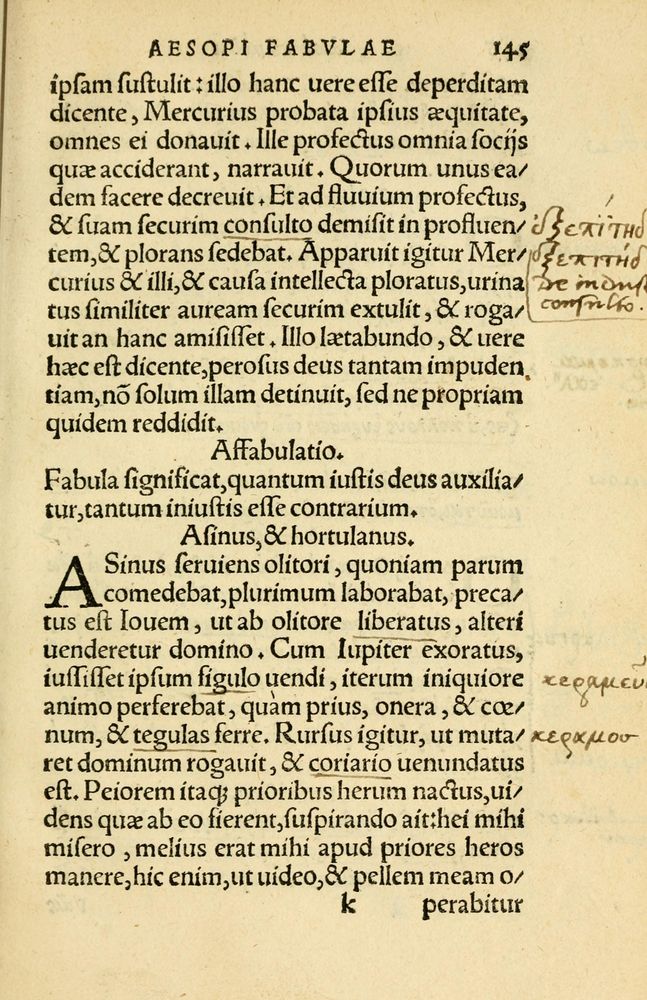 AESOPI FABVLAE 145
ipsam sustulit: illo hanc uere esse deperditam
dicente, Mercurius probata ipsius æquitate,
omnes ei donauit. Ille profectus omnia socijs
quæ acciderant, narrauit. Quorum unus ea/
dem facere decreuit. Et ad fluuium profectus,
& suam securim consulto demisit in profluen/
tem, & plorans sedebat. Apparuit igitur Mer/
curius & illi, & causa intellecta ploratus, urina
tus similiter auream securim extulit, & roga/
uit an hanc amisisset. Illo lætabundo, & uere
hæc est dicente, perosus deus tantam impuden
tiam, nõ solum illam detinuit, sed ne propriam
quidem reddidit.
Affabulatio.
Fabula significat, quantum iustis deus auxilia/
tur, tantum iniustis esse contrarium.
Asinus, & hortulanus.
ASinus seruiens olitori, quoniam parum
comedebat, plurimum laborabat, preca/
tus est Iouem, ut ab olitore liberatus, alteri
uenderetur domino. Cum Iupiter exoratus,
iussisset ipsum figulo uendi, iterum iniquiore
animo perferebat, quàm prius, onera, & cœ/
num, & tegulas ferre. Rursus igitur, ut muta/
ret dominum rogauit, & coriario uenundatus
est. Peiorem itaq; prioribus herum nactus, ui/
dens quæ ab eo fierent, suspirando ait: hei mihi
misero, melius erat mihi apud priores heros
manere, hic enim, ut uideo, & pellem meam o/
k perabitur
ἐξεπίτηδ
ἐξεπίτηδ
consulto.
κεραμεὺ
κεραμοσ